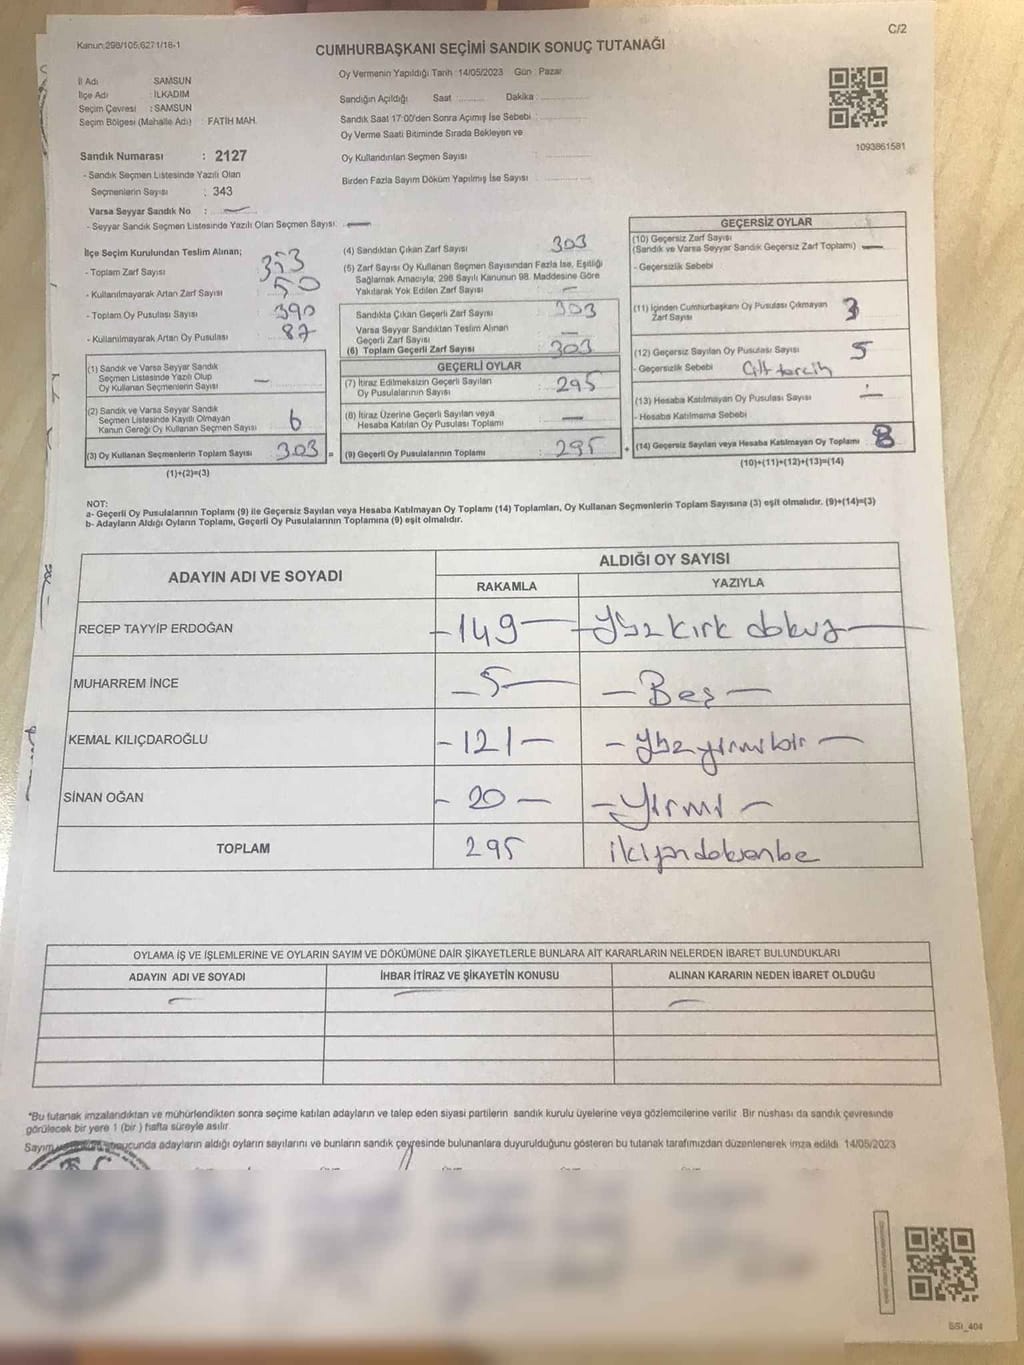 Kanun:298/105;6271/18-1
C/2
CUMHURBAŞKANI SEÇİMİ SANDIK SONUÇ TUTANAĞI
İl Adı SAMSUN
İlçe Adı İLKADIM
Seçim Çevresi : SAMSUN
Seçim Bölgesi (Mahalle Adı) : FATİH MAH.
Sandık Numarası : 2127
- Sandık Seçmen Listesinde Yazılı Olan
Seçmenlerin Sayısı : 343
Varsa Seyyar Sandık No :
- Seyyar Sandık Seçmen Listesinde Yazılı Olan Seçmen Sayısı:
Oy Vermenin Yapıldığı Tarih :14/05/2023 Gün : Pazar
Sandığın Açıldığı Saat : Dakika :
Sandık Saat 17:00'den Sonra Açılmış İse Sebebi :
Oy Verme Saati Bitiminde Sırada Bekleyen ve
Oy Kullandırılan Seçmen Sayısı :
Birden Fazla Sayım Döküm Yapılmış İse Sayısı :
1093861581
İlçe Seçim Kurulundan Teslim Alınan;
- Toplam Zarf Sayısı : 353
- Kullanılmayarak Artan Zarf Sayısı : 50
- Toplam Oy Pusulası Sayısı : 390
- Kullanılmayarak Artan Oy Pusulası : 87
(1) Sandık ve Varsa Seyyar Sandık
Seçmen Listesinde Yazılı Olup
Oy Kullanan Seçmenlerin Sayısı : —
(2) Sandık ve Varsa Seyyar Sandık
Seçmen Listesinde Kayıtlı Olmayan
Kanun Gereği Oy Kullanan Seçmen Sayısı : 6
(3) Oy Kullanan Seçmenlerin Toplam Sayısı : 303 =
(1)+(2)=(3)
(4) Sandıktan Çıkan Zarf Sayısı : 303
(5) Zarf Sayısı Oy Kullanan Seçmen Sayısından Fazla İse, Eşitliği
Sağlamak Amacıyla, 298 Sayılı Kanunun 98. Maddesine Göre
Yakılarak Yok Edilen Zarf Sayısı : —
Sandıkta Çıkan Geçerli Zarf Sayısı : 303
Varsa Seyyar Sandıktan Teslim Alınan
Geçerli Zarf Sayısı : —
(6) Toplam Geçerli Zarf Sayısı : 303
GEÇERLİ OYLAR
(7) İtiraz Edilmeksizin Geçerli Sayılan
Oy Pusulasının Sayısı : 295
(8) İtiraz Üzerine Geçerli Sayılan veya
Hesaba Katılan Oy Pusulası Toplamı : —
(9) Geçerli Oy Pusulalarının Toplamı : 295 +
GEÇERSİZ OYLAR
(10) Geçersiz Zarf Sayısı
(Sandık ve Varsa Seyyar Sandık Geçersiz Zarf Toplamı) : —
- Geçersizlik Sebebi
(11) İçinden Cumhurbaşkanı Oy Pusulası Çıkmayan
Zarf Sayısı : 3
(12) Geçersiz Sayılan Oy Pusulası Sayısı : 5
- Geçersizlik Sebebi : Çift tercih
(13) Hesaba Katılmayan Oy Pusulası Sayısı : —
- Hesaba Katılmama Sebebi
(14) Geçersiz Sayılan veya Hesaba Katılmayan Oy Toplamı : 8
(10)+(11)+(12)+(13)=(14)
NOT:
a- Geçerli Oy Pusulalarının Toplamı (9) ile Geçersiz Sayılan veya Hesaba Katılmayan Oy Toplamı (14) Toplamları, Oy Kullanan Seçmenlerin Toplam Sayısına (3) eşit olmalıdır. (9)+(14)=(3)
b- Adayların Aldığı Oyların Toplamı, Geçerli Oy Pusulalarının Toplamına (9) eşit olmalıdır.
ADAYIN ADI VE SOYADI
ALDIĞI OY SAYISI
RAKAMLA YAZIYLA
RECEP TAYYİP ERDOĞAN -149- Yüz kırk dokuz
MUHARREM İNCE -5- -Beş-
KEMAL KILIÇDAROĞLU -121- -Yüz yirmi bir-
SİNAN OĞAN -20- -Yirmi-
TOPLAM 295 ikiyüzdoksanbe
OYLAMA İŞ VE İŞLEMLERİNE VE OYLARIN SAYIM VE DÖKÜMÜNE DAİR ŞİKAYETLERLE BUNLARA AİT KARARLARIN NELERDEN İBARET BULUNDUKLARI
ADAYIN ADI VE SOYADI İHBAR İTİRAZ VE ŞİKAYETİN KONUSU ALINAN KARARIN NEDEN İBARET OLDUĞU
*Bu tutanak imzalandıktan ve mühürlendikten sonra seçime katılan adayların ve talep eden siyasi partilerin sandık kurulu üyelerine veya gözlemcilerine verilir. Bir nüshası da sandık çevresinde
görülecek bir yere 1 (bir ) hafta süreyle asılır.
Sayım sonucunda adayların aldığı oyların sayılarını ve bunların sandık çevresinde bulunanlara duyurulduğunu gösteren bu tutanak tarafımızdan düzenlenerek imza edildi. 14/05/2023
SSI_404